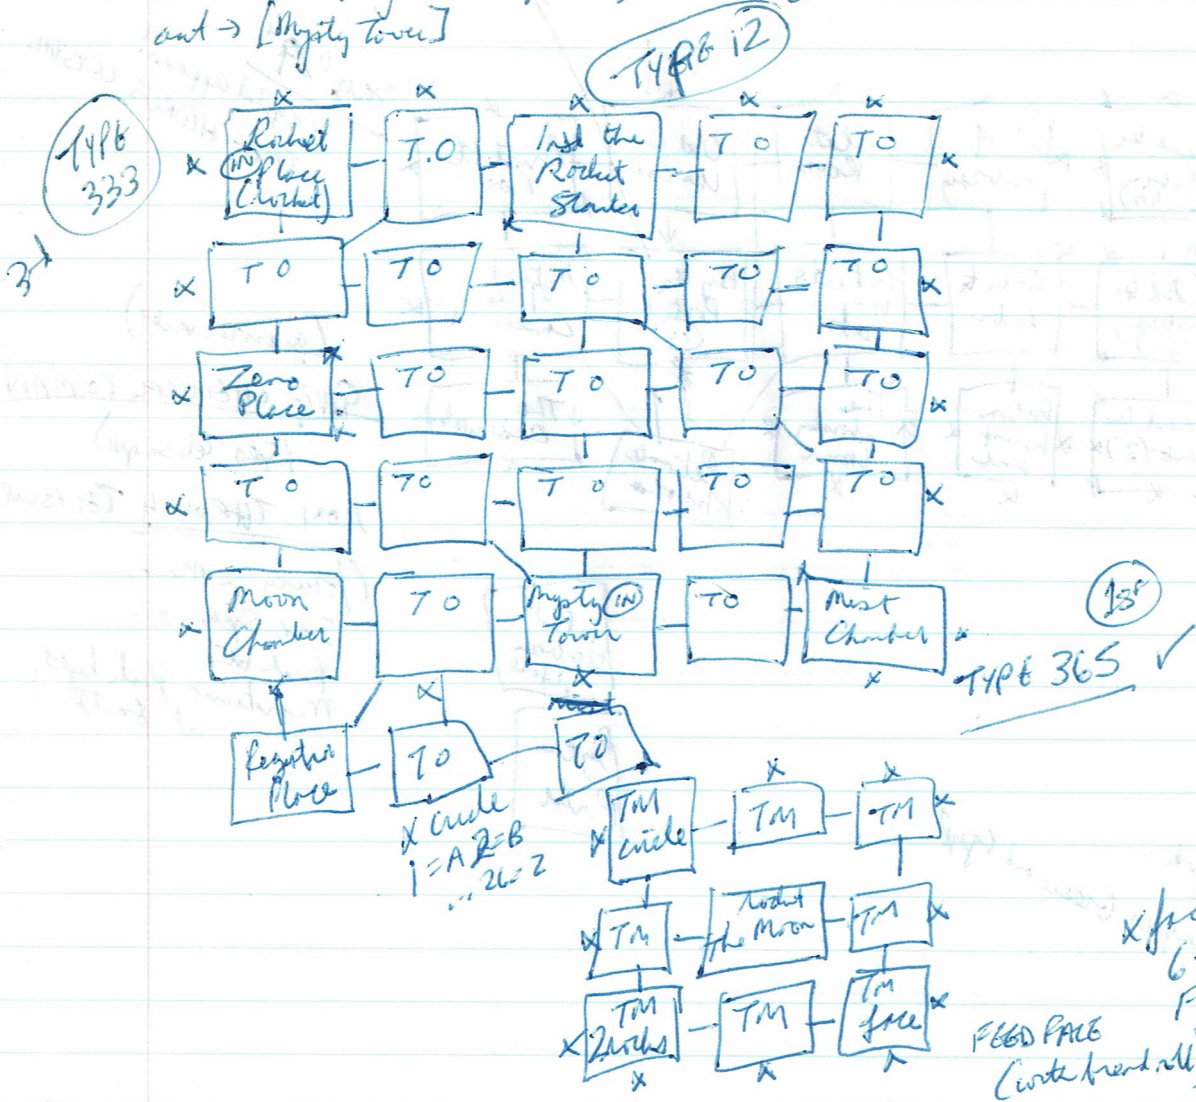 out → [Mysty Tower]
TYPE 12
TYPE
333
3rd
x x x x x
x Rocket
IN Place
(Rocket)
T.O
Inst the
Rocket
T O
T O x
x T O
T O
T O
T O
T O x
x Zero
Place
x
x
T O
T O
T O
T O x
x T O
T O
T O
T O
T O x
x Moon
Chamber
T O
Mysty IN
Tower
T O
Mist
Chamber x
1st
TYPE 365 ✓
x x x x
Register
Place
T O
T O
x circle
1=A 2=B
... 26=Z
x x x
x TM
circle
TM
TM
x TM
Rocket
The Moon
TM x
x TM
2 rocks
TM
TM
face x
x x x
FEED FACE